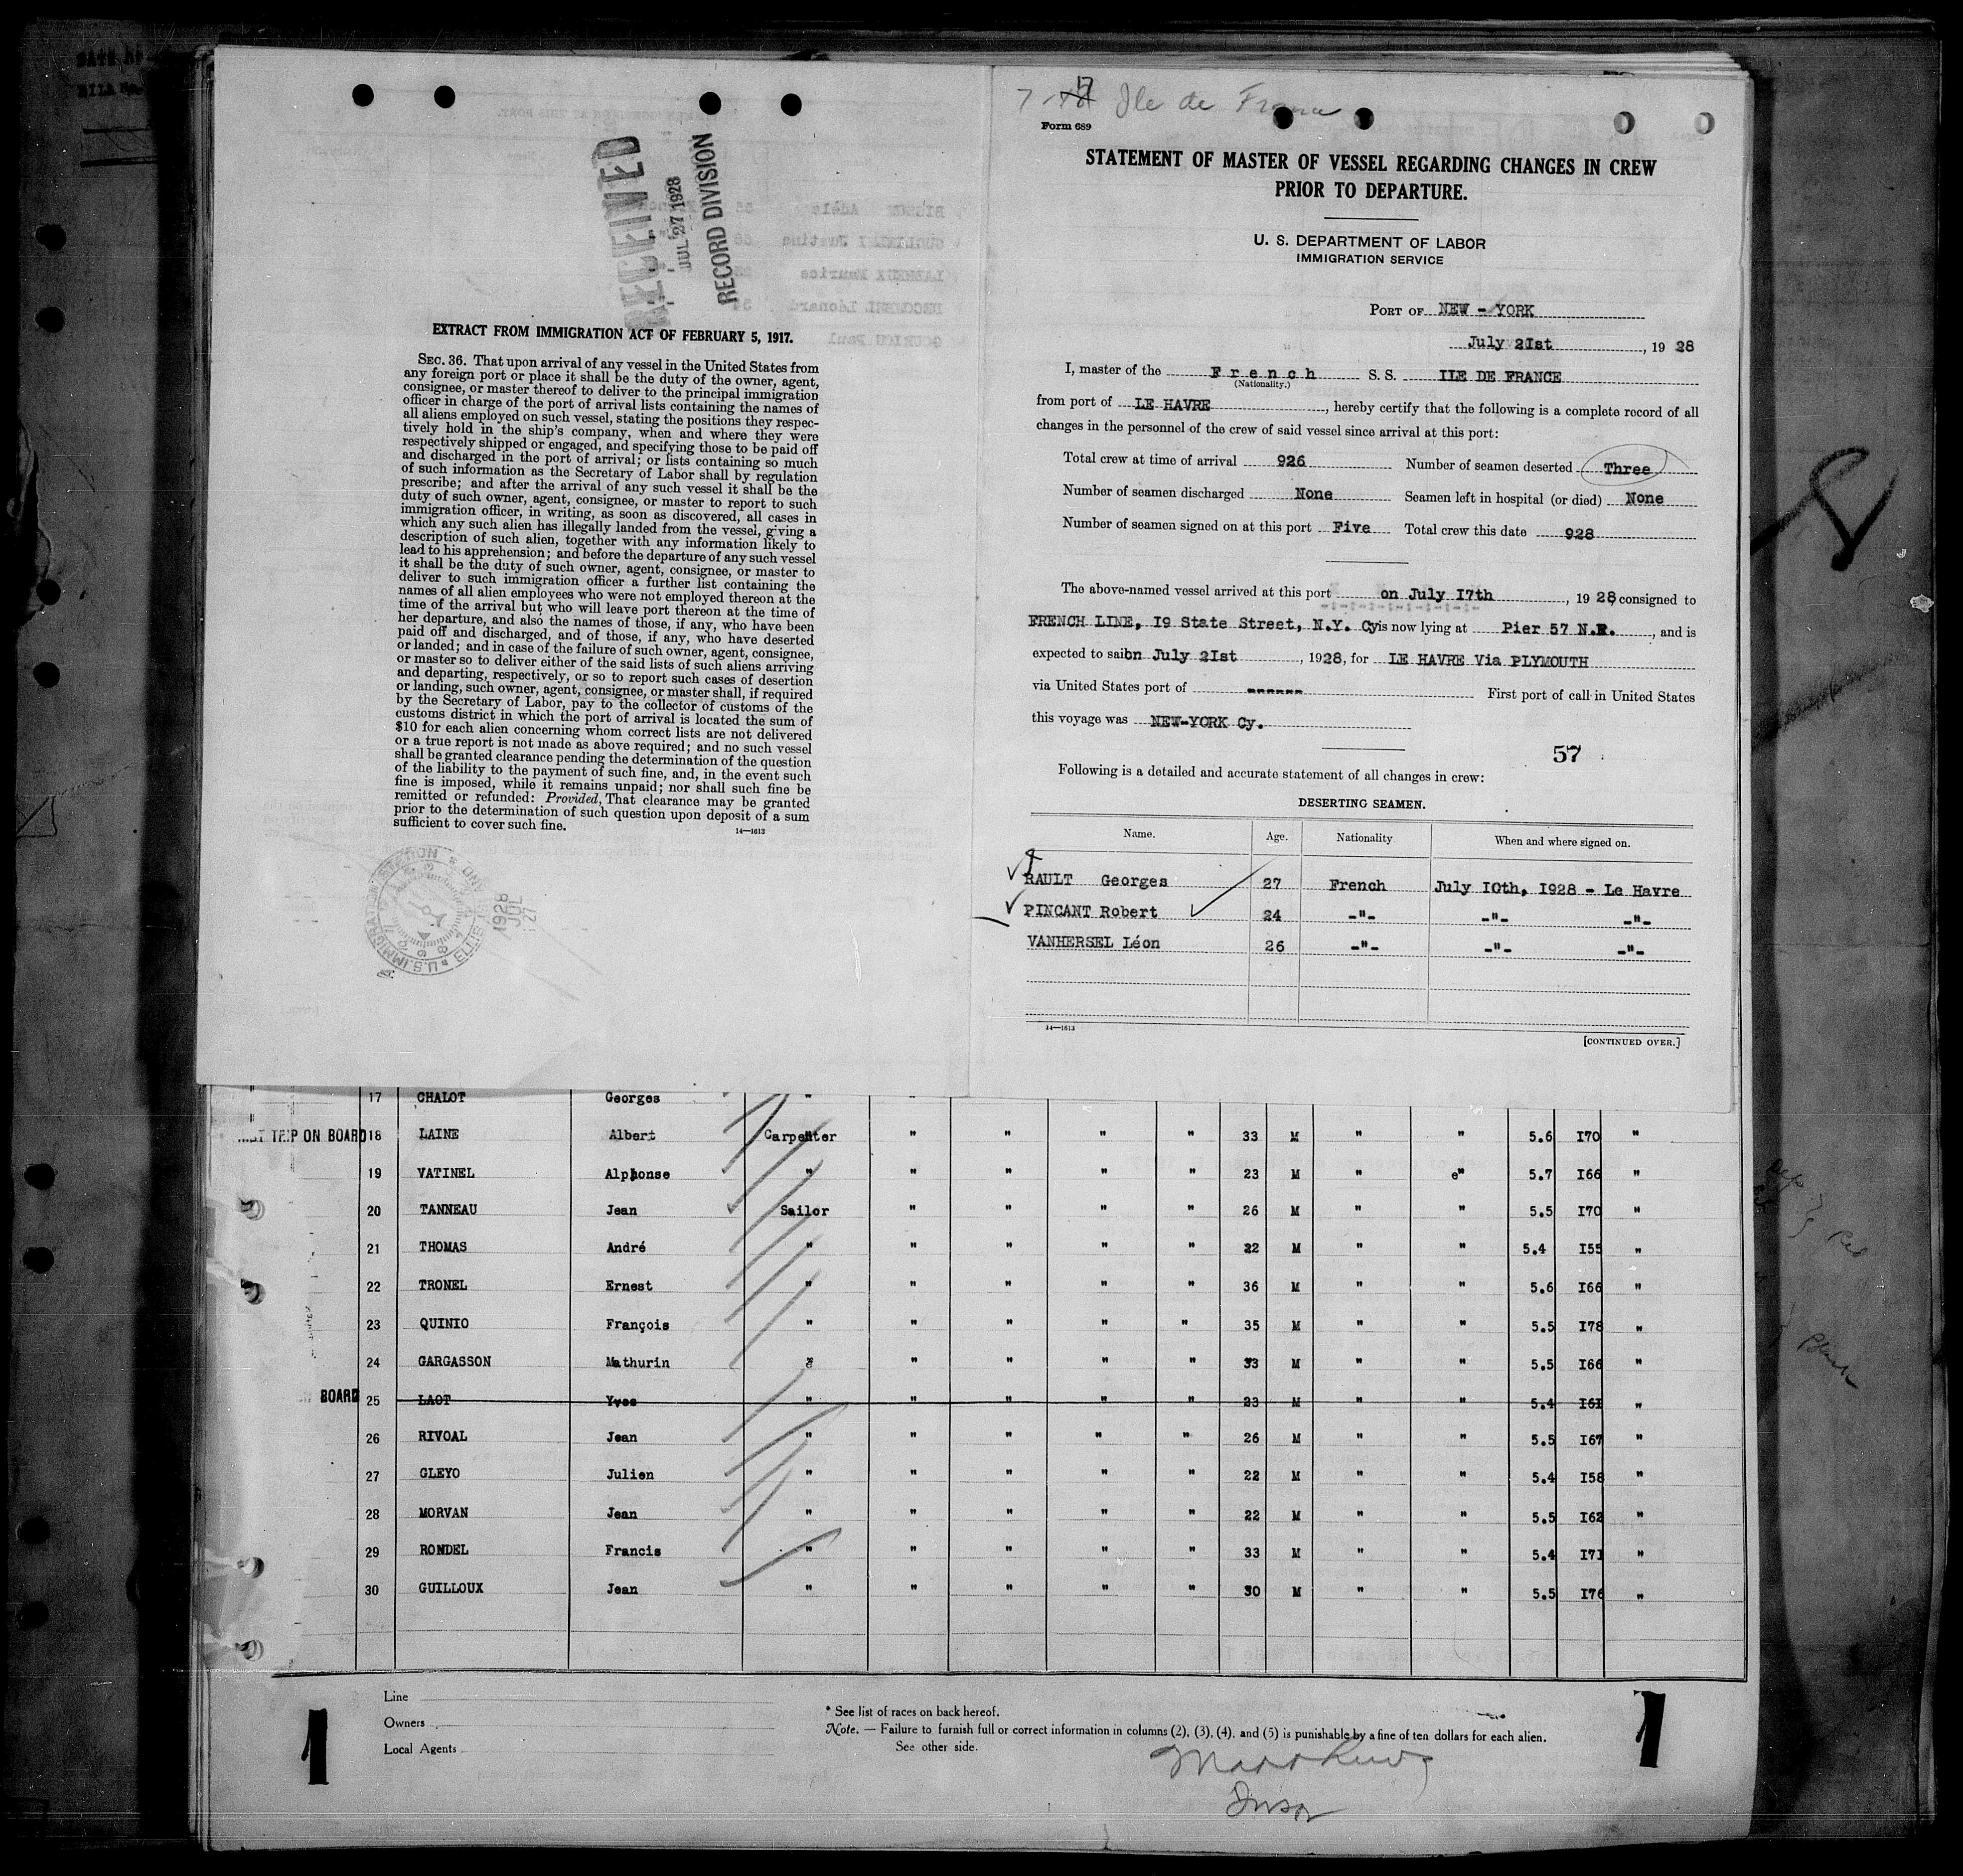 RECEIVED
JUL 27 1928
RECORD DIVISION
EXTRACT FROM IMMIGRATION ACT OF FEBRUARY 5, 1917.
SEC. 36. That upon arrival of any vessel in the United States from
any foreign port or place it shall be the duty of the owner, agent,
consignee, or master thereof to deliver to the principal immigration
officer in charge of the port of arrival lists containing the names of
all aliens employed on such vessel, stating the positions they respec-
tively hold in the ship's company, when and where they were
respectively shipped or engaged, and specifying those to be paid off
and discharged in the port of arrival; or lists containing so much
of such information as the Secretary of Labor shall by regulation
prescribe; and after the arrival of any such vessel it shall be the
duty of such owner, agent, consignee, or master to report to such
immigration officer, in writing, as soon as discovered, all cases in
which any such alien has illegally landed from the vessel, giving a
description of such alien, together with any information likely to
lead to his apprehension; and before the departure of any such vessel
it shall be the duty of such owner, agent, consignee, or master to
deliver to such immigration officer a further list containing the
names of all alien employees who were not employed thereon at the
time of the arrival but who will leave port thereon at the time of
her departure, and also the names of those, if any, who have been
paid off and discharged, and of those, if any, who have deserted
or landed; and in case of the failure of such owner, agent, consignee,
or master so to deliver either of the said lists of such aliens arriving
and departing, respectively, or so to report such cases of desertion
or landing, such owner, agent, consignee, or master shall, if required
by the Secretary of Labor, pay to the collector of customs of the
customs district in which the port of arrival is located the sum of
$10 for each alien concerning whom correct lists are not delivered
or a true report is not made as above required; and no such vessel
shall be granted clearance pending the determination of the question
of the liability to the payment of such fine, and, in the event such
fine is imposed, while it remains unpaid; nor shall such fine be
remitted or refunded: Provided, That clearance may be granted
prior to the determination of such question upon deposit of a sum
sufficient to cover such fine.
14—1613
1928
JUL
27
Ile de France
Form 689
STATEMENT OF MASTER OF VESSEL REGARDING CHANGES IN CREW
PRIOR TO DEPARTURE.
U. S. DEPARTMENT OF LABOR
IMMIGRATION SERVICE
PORT OF NEW - YORK
July 2Ist, 19 28
I, master of the French S. S. ILE DE FRANCE
(Nationality.)
from port of LE HAVRE, hereby certify that the following is a complete record of all
changes in the personnel of the crew of said vessel since arrival at this port:
Total crew at time of arrival 926 Number of seamen deserted Three
Number of seamen discharged None Seamen left in hospital (or died) None
Number of seamen signed on at this port Five Total crew this date 928
The above-named vessel arrived at this port on July I7th, 19 28, consigned to
FRENCH LINE, I9 State Street, N.Y. Cy is now lying at Pier 57 N.R., and is
expected to sail on July 2Ist, 1928, for LE HAVRE Via PLYMOUTH
via United States port of ------ First port of call in United States
this voyage was NEW-YORK Cy.
57
Following is a detailed and accurate statement of all changes in crew:
DESERTING SEAMEN.
Name. Age. Nationality When and where signed on.
RAULT Georges 27 French July IOth, I928 - Le Havre
PINCANT Robert 24 -"- -"- -"-
VANHERSEL Léon 26 -"- -"- -"-
14—1613
[CONTINUED OVER.]
17 CHALOT Georges " "
TRIP ON BOARD 18 LAINE Albert Carpenter " " " " 33 M " " 5.6 I70 "
19 VATINEL Alphonse " " " " " 23 M " e" 5.7 I66 "
20 TANNEAU Jean Sailor " " " " 26 M " " 5.5 I70 "
21 THOMAS André " " " " " 22 M " " 5.4 I55 "
22 TRONEL Ernest " " " " " 36 M " " 5.6 I66 "
23 QUINIO François " " " " " 35 M " " 5.5 I78 "
24 GARGASSON Mathurin " " " " " 33 M " " 5.5 I66 "
BOARD 25 LAOT Yves " " " " " 23 M " " 5.4 I6I "
26 RIVOAL Jean " " " " " 26 M " " 5.5 I67 "
27 GLEYO Julien " " " " " 22 M " " 5.4 I58 "
28 MORVAN Jean " " " " " 22 M " " 5.5 I62 "
29 RONDEL Francis " " " " " 33 M " " 5.4 I71 "
30 GUILLOUX Jean " " " " " 30 M " " 5.5 I76 "
Line
Owners
Local Agents
* See list of races on back hereof.
Note. — Failure to furnish full or correct information in columns (2), (3), (4), and (5) is punishable by a fine of ten dollars for each alien.
See other side.
1
1